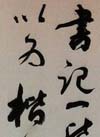 書記一
以为楷